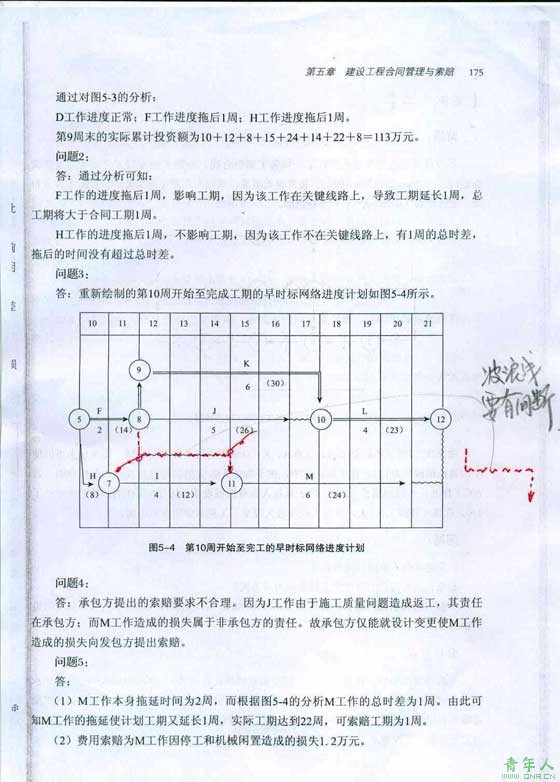 第五章　建设工程合同管理与索赔　175
通过对图5-3的分析：
D工作进度正常；F工作进度拖后1周；H工作进度拖后1周。
第9周末的实际累计投资额为10+12+8+15+24+14+22+8＝113万元。
问题2：
答：通过分析可知：
F工作的进度拖后1周，影响工期，因为该工作在关键线路上，导致工期延长1周，总
工期将大于合同工期1周。
H工作的进度拖后1周，不影响工期，因为该工作不在关键线路上，有1周的总时差，
拖后的时间没有超过总时差。
问题3：
答：重新绘制的第10周开始至完成工期的早时标网络进度计划如图5-4所示。
10 11 12 13 14 15 16 17 18 19 20 21
9 K
6 （30）
5 F 8 J 10 L 12
2 （14） 5 （26） 4 （23）
H 7 I 11 M
（8） 4 （12） 6 （24）
波浪线
要有间断
图5-4　第10周开始至完工的早时标网络进度计划
问题4：
答：承包方提出的索赔要求不合理。因为J工作由于施工质量问题造成返工，其责任
在承包方；而M工作造成的损失属于非承包方的责任。故承包方仅能就设计变更使M工作
造成的损失向发包方提出索赔。
问题5：
答：
（1）M工作本身拖延时间为2周，而根据图5-4的分析M工作的总时差为1周。由此可
知M工作的拖延使计划工期又延长1周，实际工期达到22周，可索赔工期为1周。
（2）费用索赔为M工作因停工和机械闲置造成的损失1.2万元。
青年人
WWW.QNR.CN